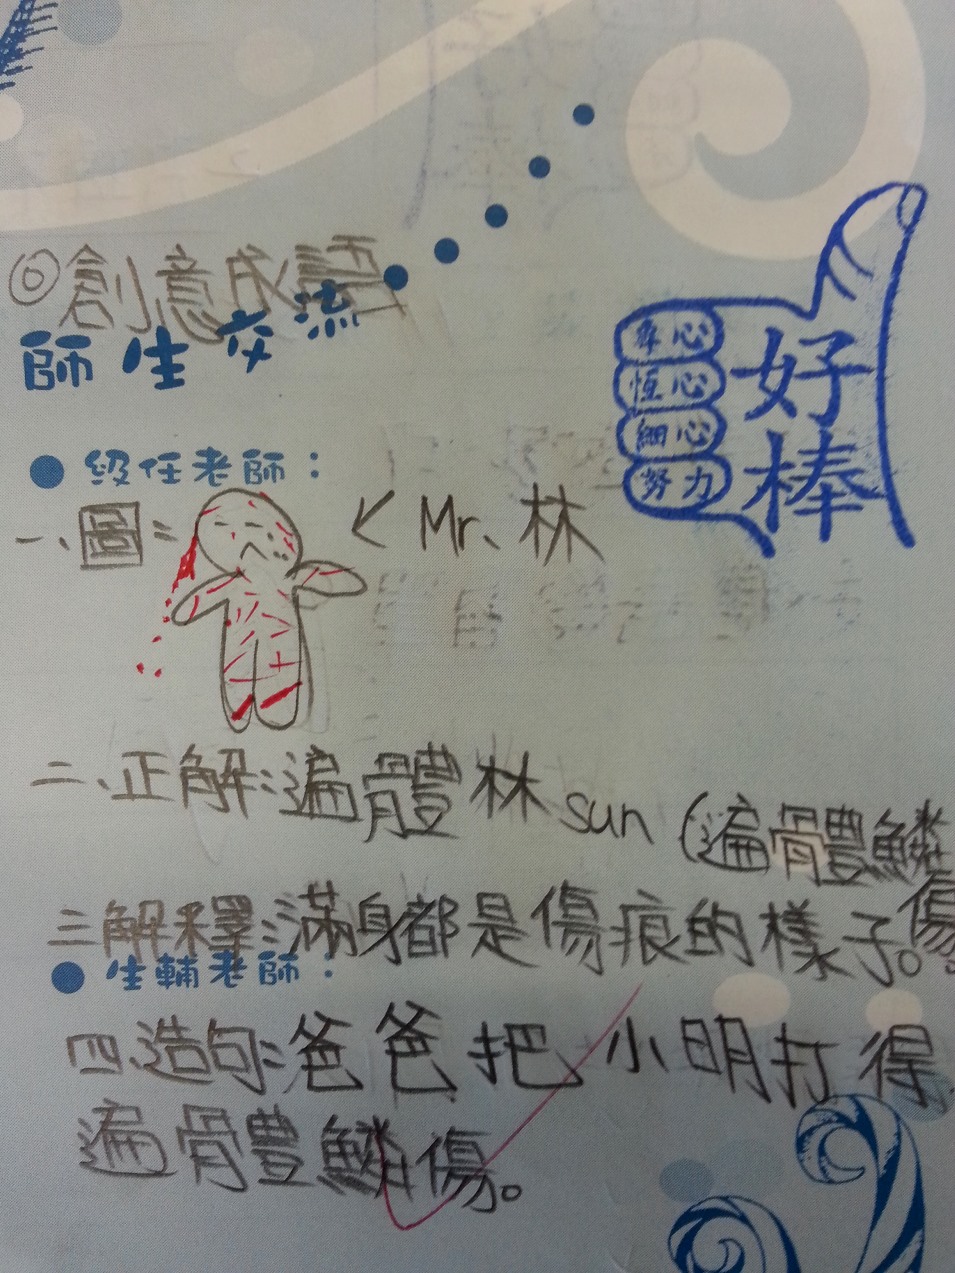 ◎創意成語
師生交流
專心
恆心
細心
努力
好棒
級任老師：
一、圖：
← Mr. 林
二、正解：遍體林 sun (遍體鱗傷)
三、解釋：滿身都是傷痕的樣子。
生輔老師：
四、造句：爸爸把小明打得
遍體鱗傷。